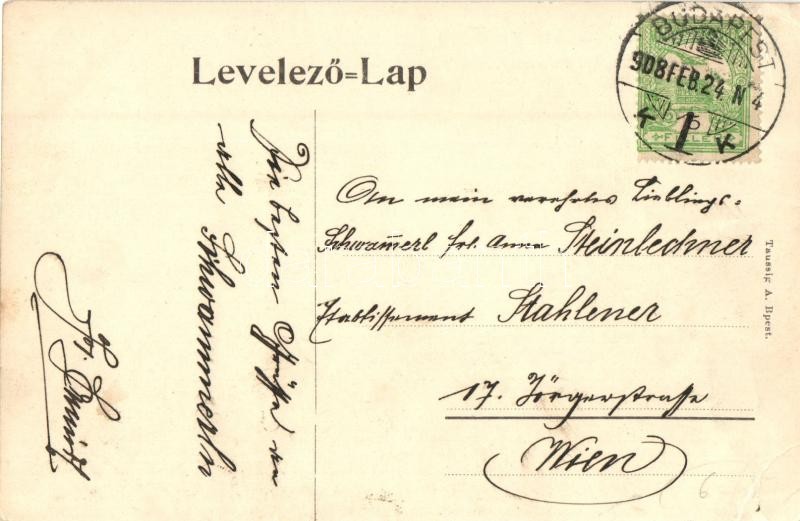 Levelező=Lap
BUDAPEST
908 FEB. 24. N 4
15
1
FILLÉR
Die besten Grüße an
alle Schwammerln
An mein verehrtes Lieblings=
Schwam̄erl Frl. Anna Steinlechner
Etablissement Stahlener
17. Jörgerstrasse
Wien
Taussig A. Bpest.
6